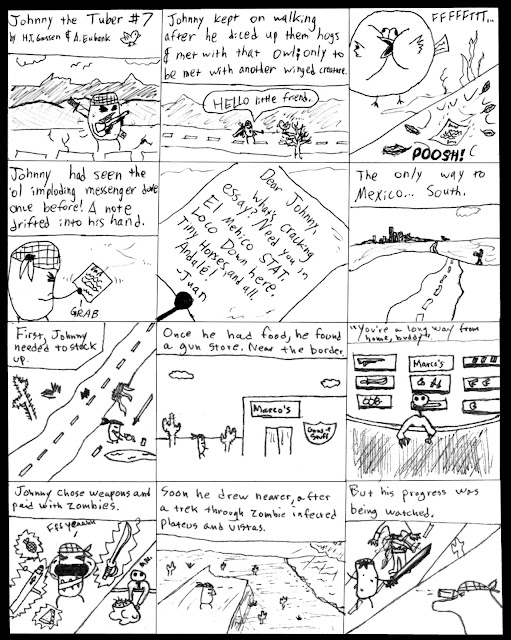 Johnny the Tuber #7
by H.J. Gassen & A. Eubank
Johnny kept on walking
after he diced up them hogs
& met with that Owl; only to
be met with another winged creature.
HELLO little frend.
FFFFFTTT...
POOSH!
Johnny had seen the
'ol imploding messenger dove
once before! A note
drifted into his hand.
GRAB
Dear Johnny,
What's cracking
essay? Need you in
El Mehico STAT.
Loco Down here.
Tiny Horses, and all.
Andalé!
-Juan
The only way to
Mexico... South.
First, Johnny
needed to stock
up.
Once he had food, he found
a gun store. Near the border.
Marco's
Guns &
Stuff
"You're a long way from
home, buddy"
Marco's
Johnny chose weapons and
paid with Zombies.
Soon he drew nearer, after
a trek through Zombie infected
Plateus and vistas.
But his progress was
being watched.